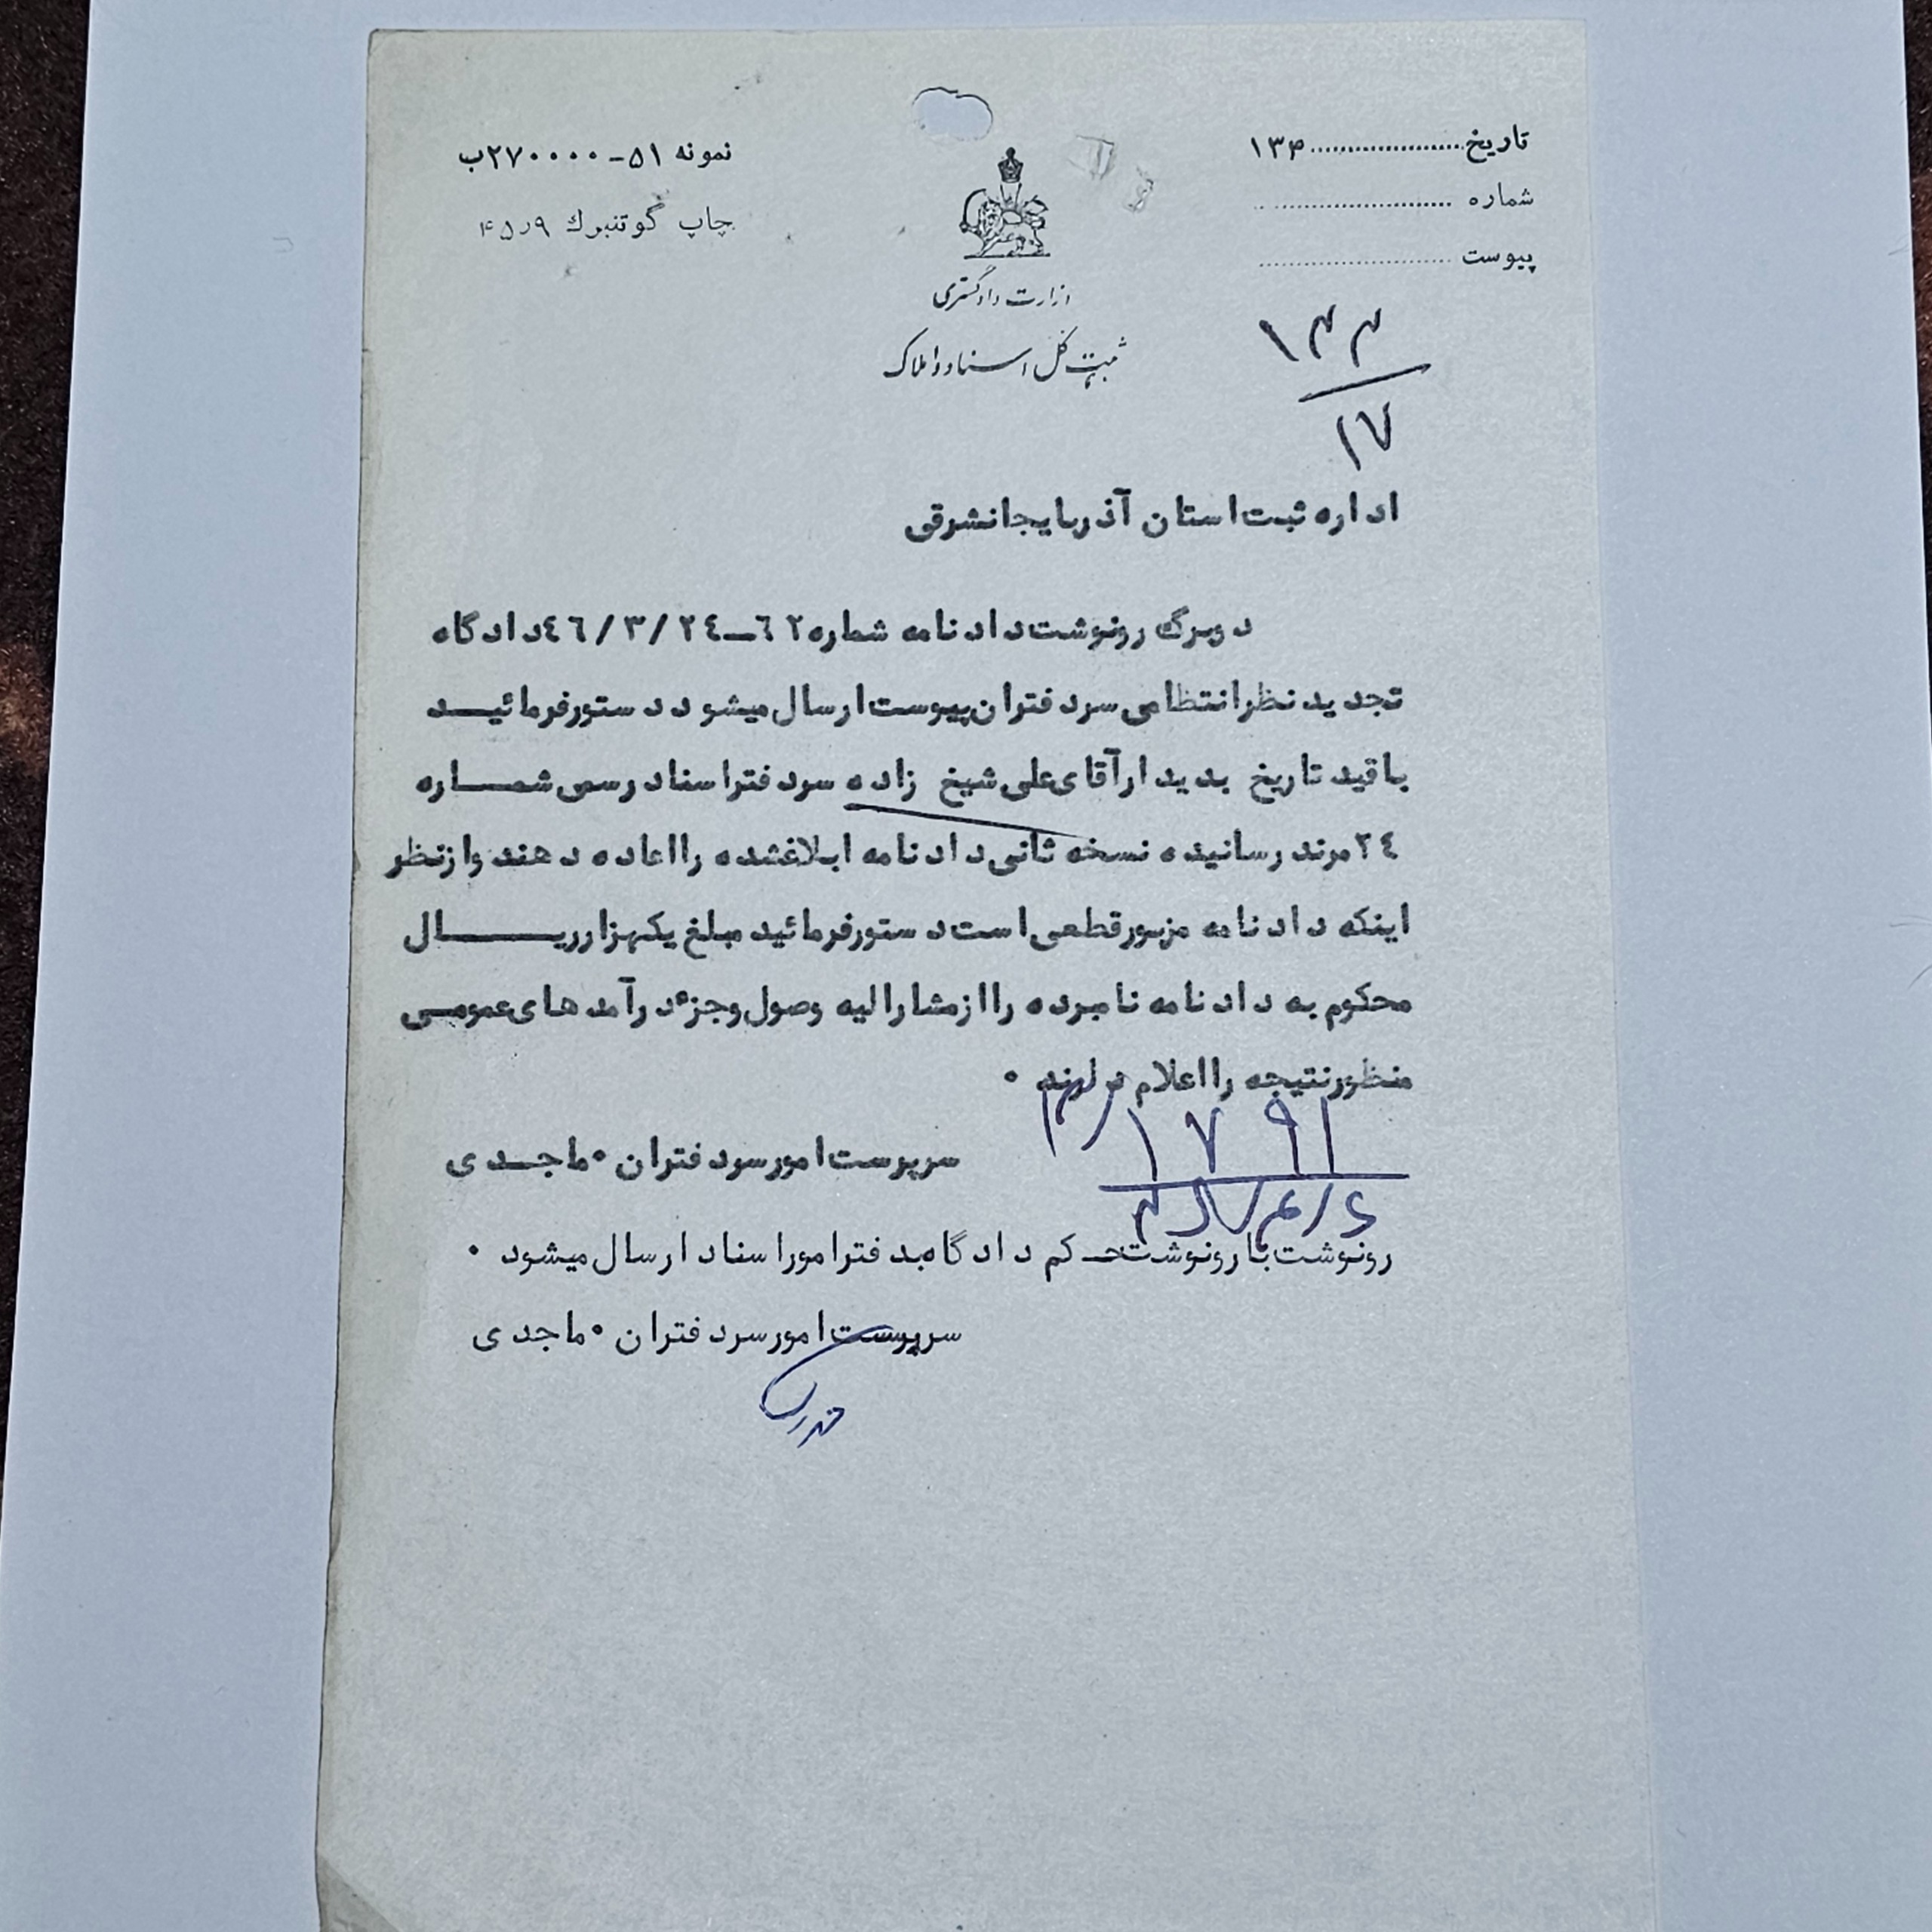 تاریخ.......................۱۳۴
شماره .......................
پیوست .......................
نمونه ۵۱-۲۷۰۰۰۰ب
چاپ گوتنبرك ۴۵٫۹
وزارت دادگستری
ثبت کل اسناد و املاک
۱۳۳
۱۷
اداره ثبت استان آذربایجانشرقی
دوبرگ رونوشت دادنامه شماره ٦٢-٤٦/٣/٢٤ دادگاه
تجدید نظر انتظامی سردفتران پیوست ارسال میشود دستور فرمائید
با قید تاریخ بدیدار آقای علی شیخ زاده سردفتر اسناد رسمی شماره
٢٤ مرند رسانیده نسخه ثانی دادنامه ابلاغشده را اعاده دهند و از نظر
اینکه دادنامه مزبور قطعی است دستور فرمائید مبلغ یکهزار ریال
محکوم به دادنامه نامبرده را از مشارالیه وصول و جزء درآمدهای عمومی
منظور نتیجه را اعلام دارند ۰
سرپرست امور سردفتران ۰ ماجدی
۱۷۹۱
رونوشت با رونوشت حکم دادگاه بدفتر امور اسناد ارسال میشود ۰
سرپرست امور سردفتران ۰ ماجدی